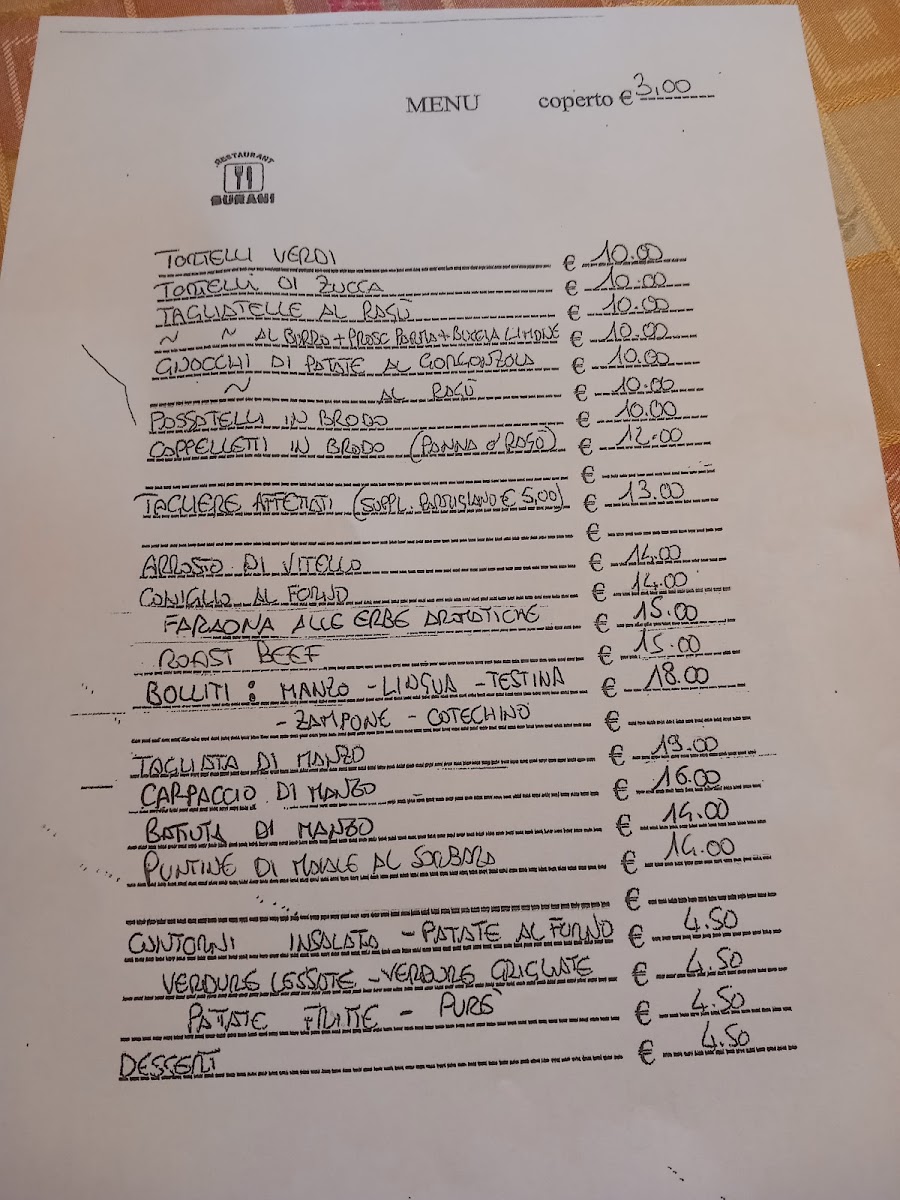 MENU coperto € 3,00
RESTAURANT
BURANI
TORTELLI VERDI € 10.00
TORTELLI DI ZUCCA € 10.00
TAGLIATELLE AL RAGÙ € 10.00
~ ~ AL BURRO + PROSC PARMA + BUCCIA LIMONE € 10.00
GNOCCHI DI PATATE AL GORGONZOLA € 10.00
~ AL RAGÙ € 10.00
PASSATELLI IN BRODO € 10.00
CAPPELLETTI IN BRODO (PANNA O' RAGÙ) € 12.00
€
TAGLIERE AFFETTATI (SUPPL. PARMIGIANO € 5,00) € 13.00
€
ARROSTO DI VITELLO € 14.00
CONIGLIO AL FORNO € 14.00
FARAONA ALLE ERBE AROMATICHE € 15.00
ROAST BEEF € 15.00
BOLLITI : MANZO - LINGUA - TESTINA € 18.00
- ZAMPONE - COTECHINO €
TAGLIATA DI MANZO € 19.00
CARPACCIO DI MANZO € 16.00
BATTUTA DI MANZO € 14.00
PUNTINE DI MAIALE AL SORBARA € 14.00
€
CONTORNI INSALATA - PATATE AL FORNO € 4.50
VERDURE LESSATE - VERDURE GRIGLIATE € 4.50
PATATE FRITTE - PURÈ € 4.50
DESSERT € 4.50